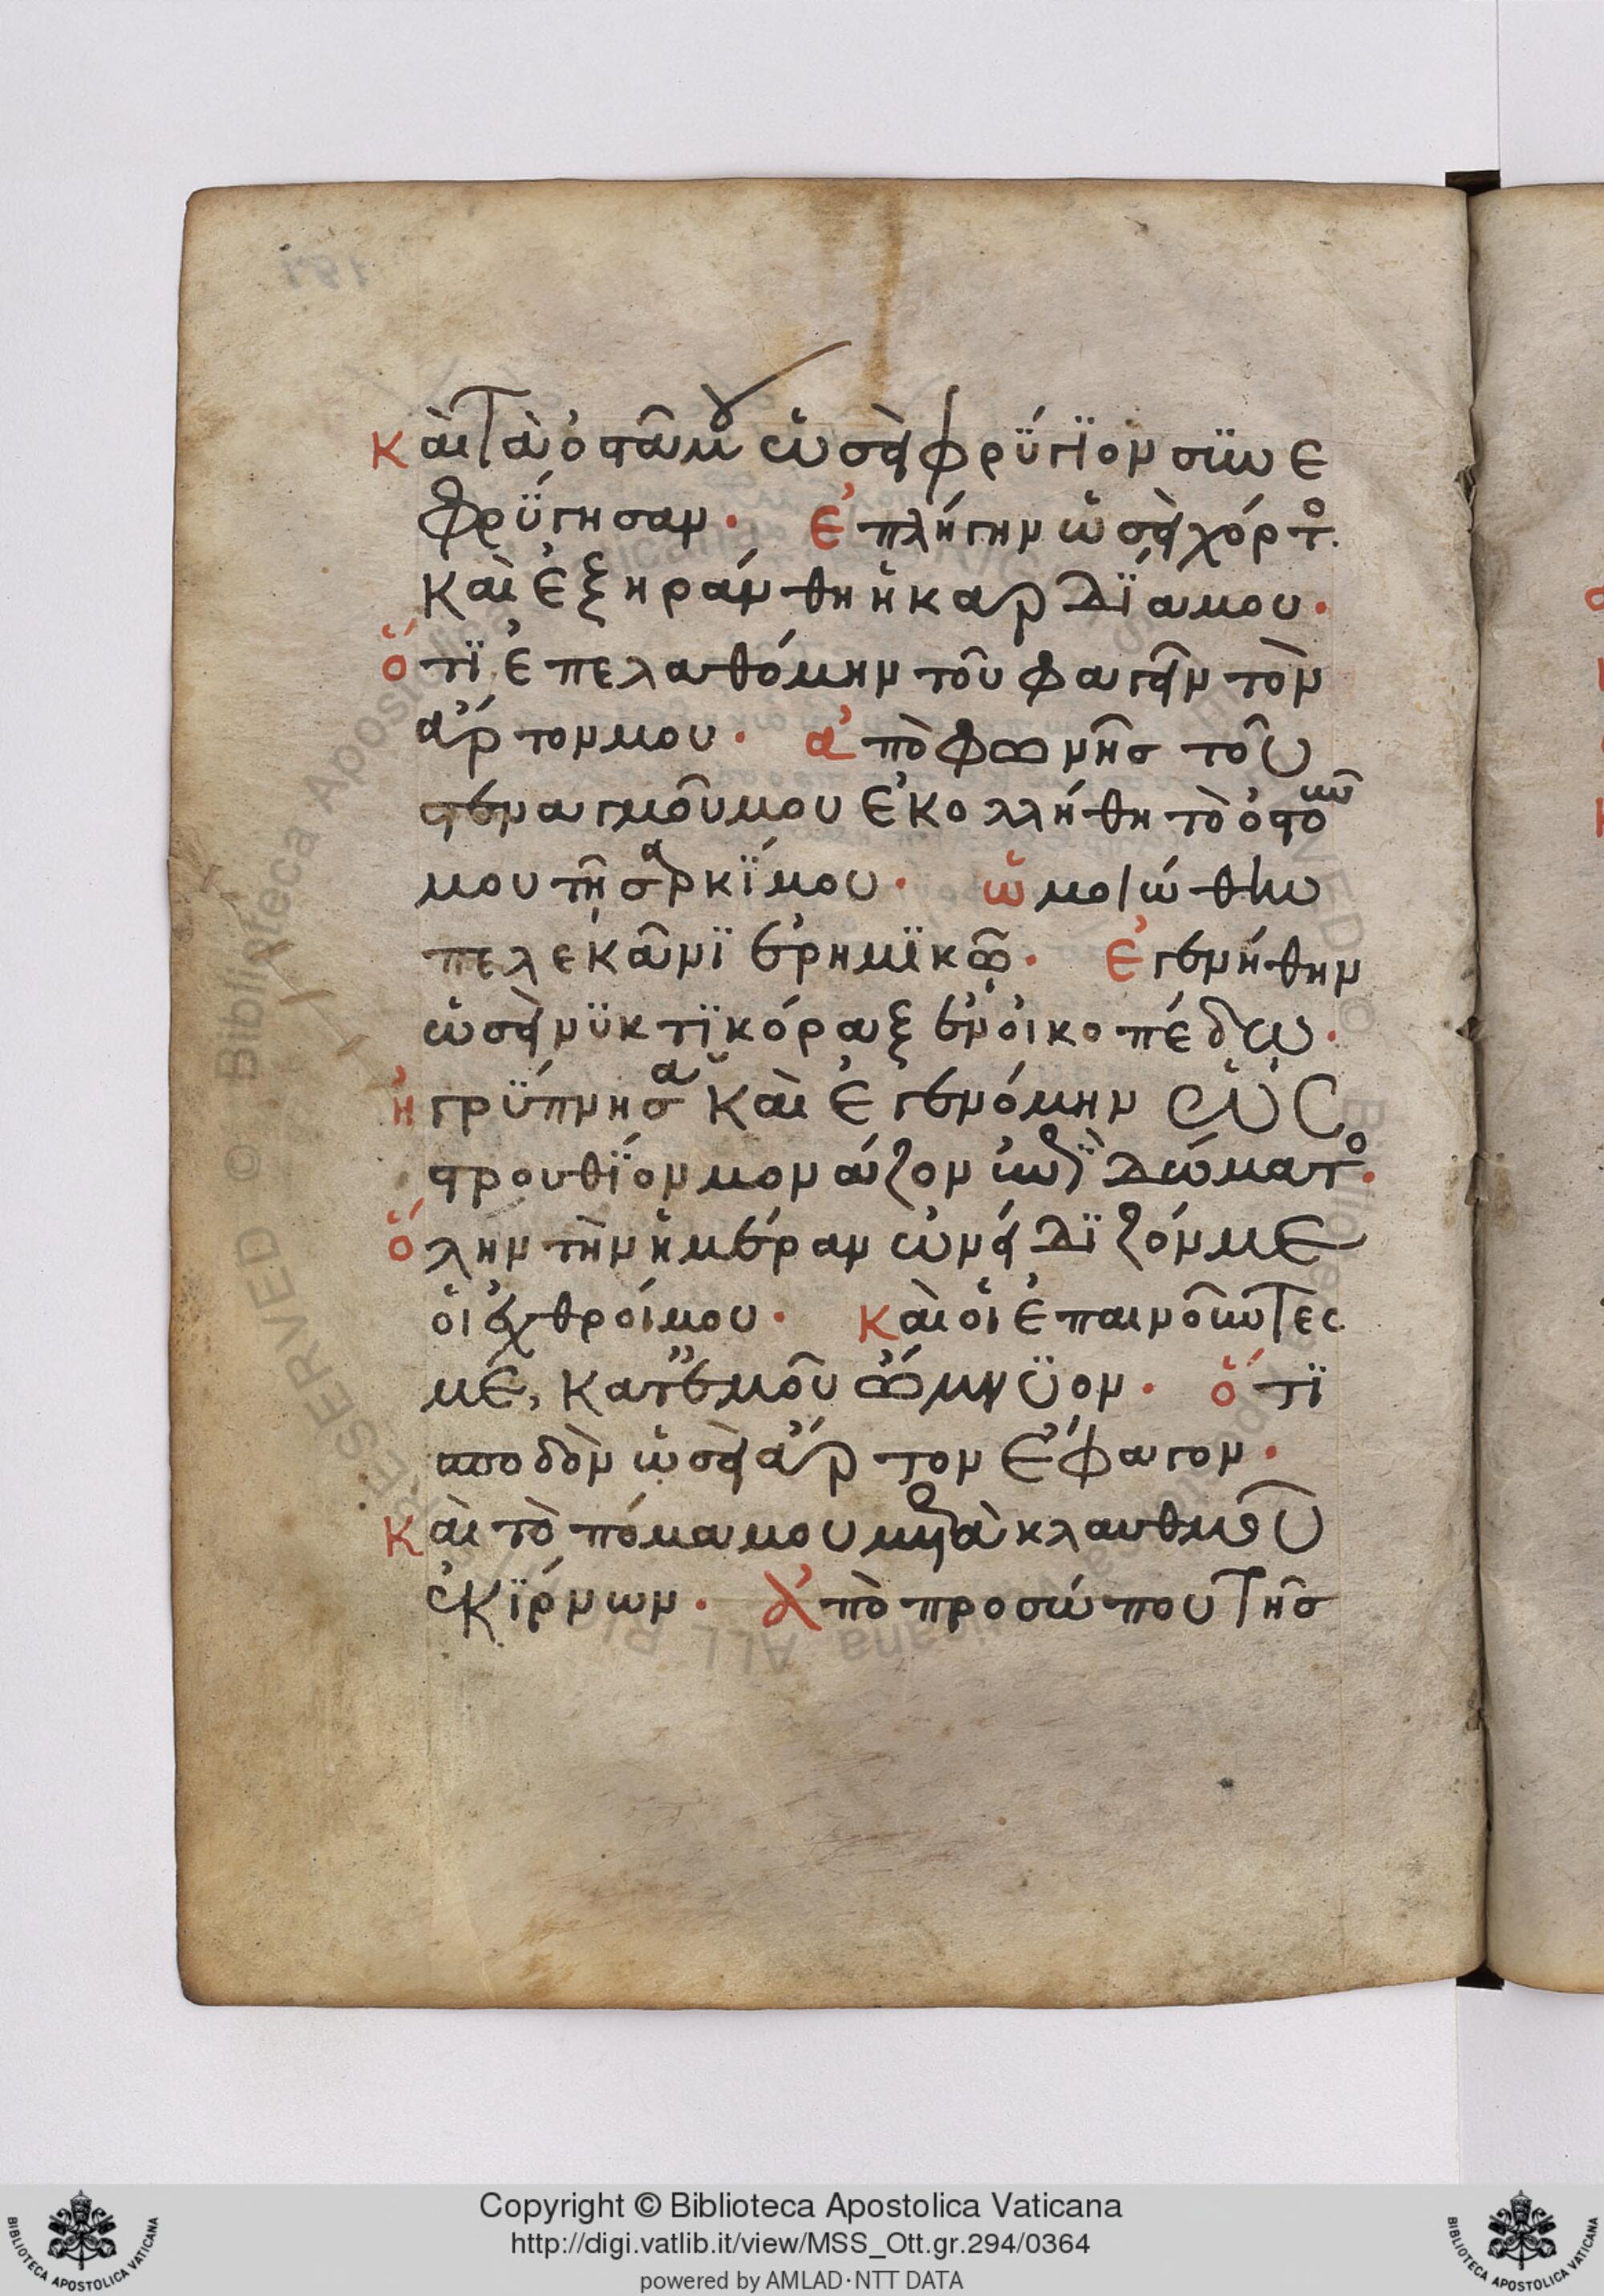 καὶ τὰ ὀστᾶ μου ὡσεὶ φρύγϊον συνε
φρύγησαν· Ἐπλήγην ὡσεὶ χόρτος
καὶ ἐξηράνθη ἡ καρδΐα μου·
ὅτϊ ἐπελαθόμην τοῦ φαγεῖν τὸν
ἄρτον μου· ἀπὸ φωνῆς τοῦ
στεναγμοῦ μου ἐκολλήθη τὸ ὀστοῦν
μου τῆ σαρκΐ μου· ὡμοιώθην
πελεκᾶνϊ ἐρημϊκῶ· ἐγενήθην
ὡσεὶ νϋκτϊκόραξ ἐν οἰκοπέδω·
ἠγρΰπνησα καὶ ἐγενόμην ὡς
στρουθΐον μονάζον ἐπὶ δώματος·
ὅλην τὴν ἡμέραν ὠνείδϊζόν με
οἱ ἐχθροί μου· καὶ οἱ ἐπαινοῦντες
μέ, κατ' ἐμοῦ ὤμνϋον· ὅτϊ
σποδὸν ὡσεὶ ἄρτον ἔφαγον·
καὶ τὸ πόμα μου μετὰ κλαυθμοῦ
ἐκΐρνων· ἀπὸ προσώπου τῆς
Copyright © Biblioteca Apostolica Vaticana
http://digi.vatlib.it/view/MSS_Ott.gr.294/0364
powered by AMLAD·NTT DATA
BIBLIOTECA APOSTOLICA VATICANA
BIBLIOTECA APOSTOLICA VATICANA